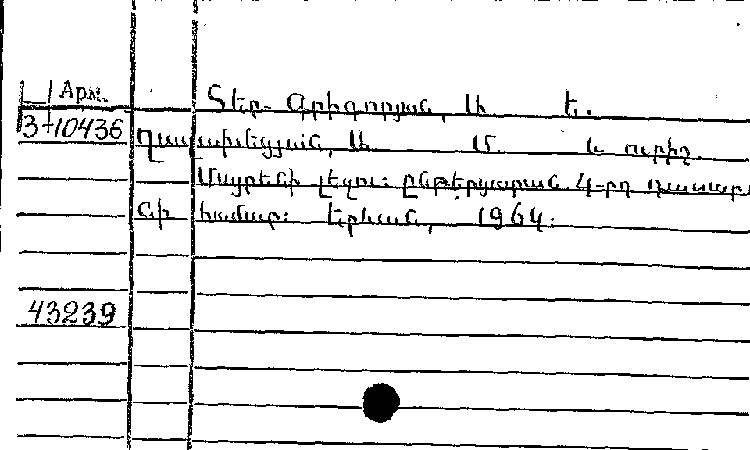 Арм.
Տեր-Գրիգորյան, Ա. Ե.
3-10436
Ղասաբխեցյան, Ա. Մ. և ուրիշ.
Մայրենի լեզու: ընթերցարան 4-րդ դասար
նի համար: Երևան, 1964.
43239